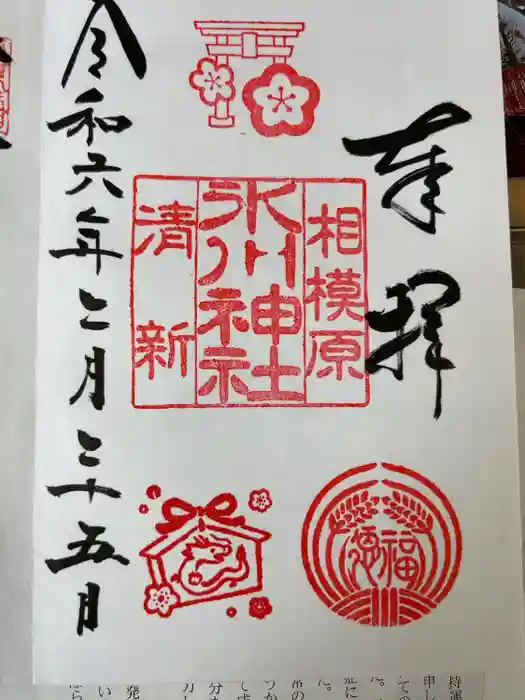 奉拝
相模原
氷川神社
清新
令和六年二月二十五日
福
申し